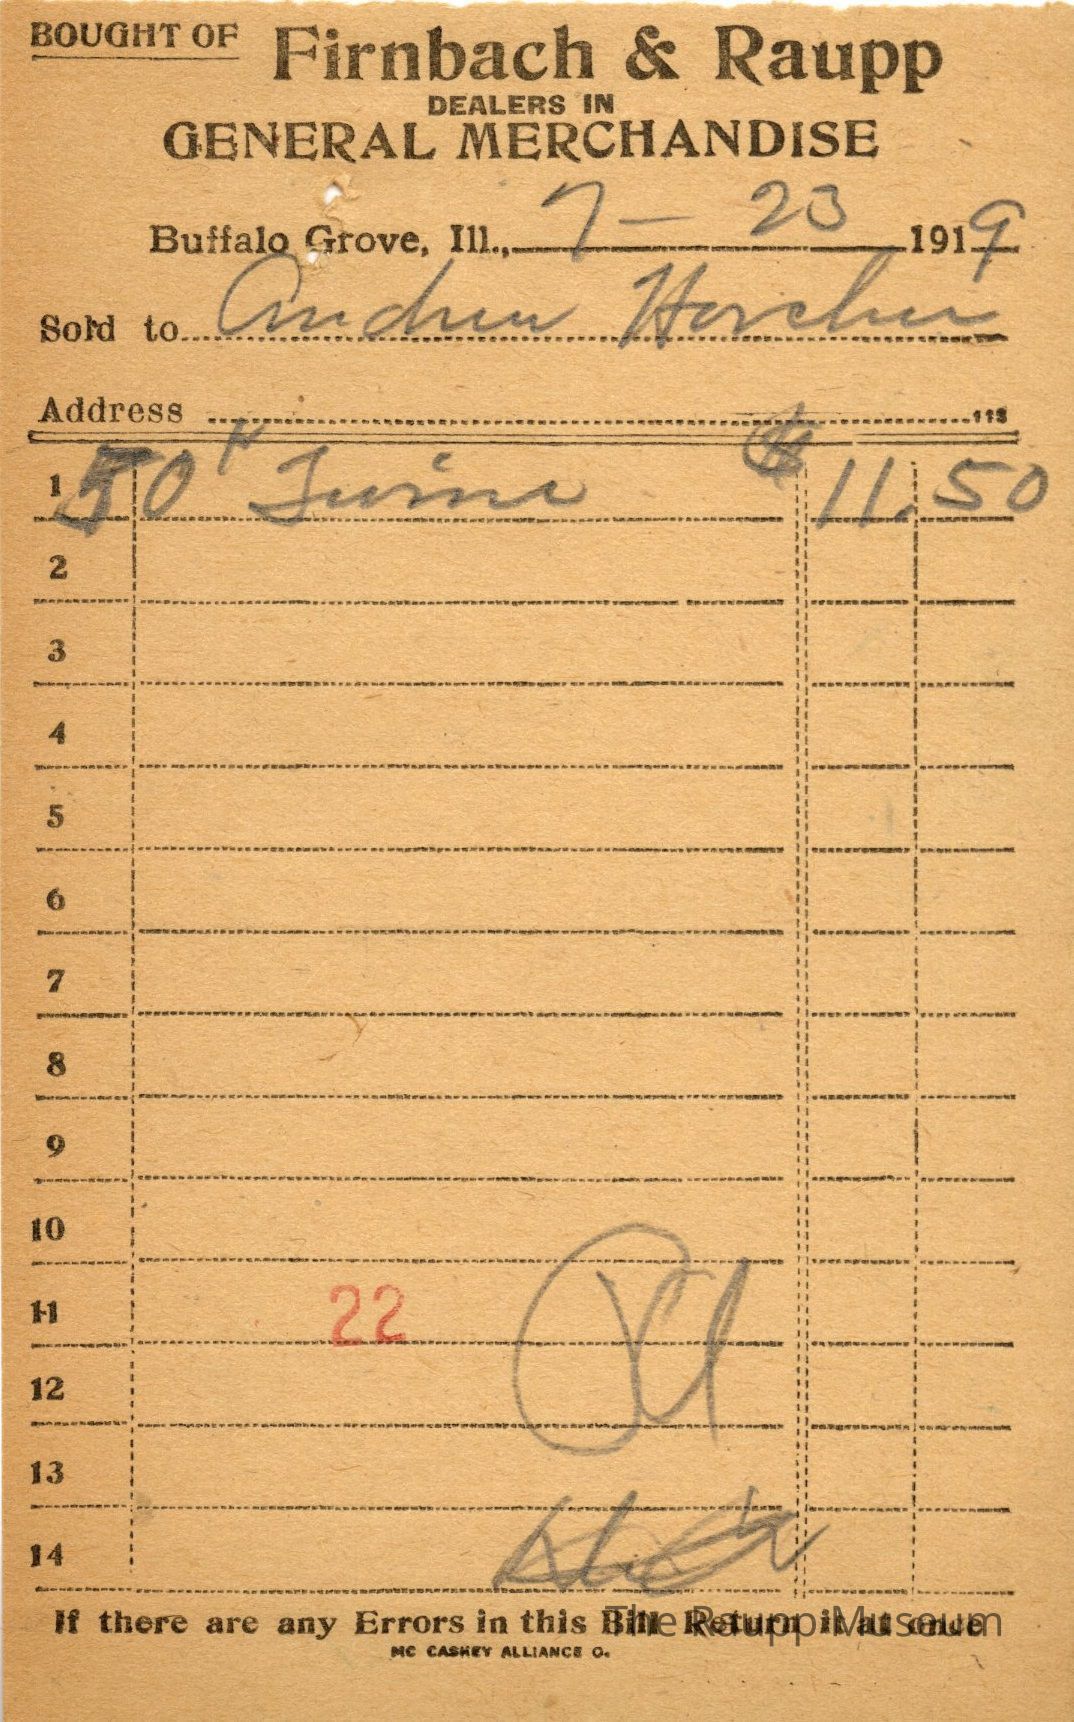 BOUGHT OF Firnbach & Raupp
DEALERS IN
GENERAL MERCHANDISE
Buffalo Grove, Ill., 7 – 23 1919
Sold to Andrew Horcher
Address
1 50 # Twine $ 11.50
2
3
4
5
6
7
8
9
10
11 22
12
13
14
If there are any Errors in this Bill Return it at once
The Raupp Museum
MC CASKEY ALLIANCE O.